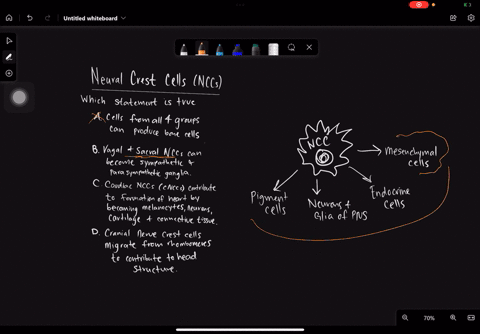 Untitled whiteboard
Neural Crest Cells (NCCs)
Which statement is true
A. Cells from all 4 groups
can produce bone cells
B. Vagal + Sacral NCCs can
become sympathetic +
parasympathetic ganglia.
C Cardiac NCCs (cNCCs) contribute
to formation of heart by
becoming melanocytes, neurons,
cartilage + connective tissue.
D. Cranial Nerve Crest cells
migrate from rhombomeres
to contribute to head
structure.
NCC
mesenchymal
cells
Endocrine
cells
Neurons +
Glia of PNS
Pigment
cells
70%